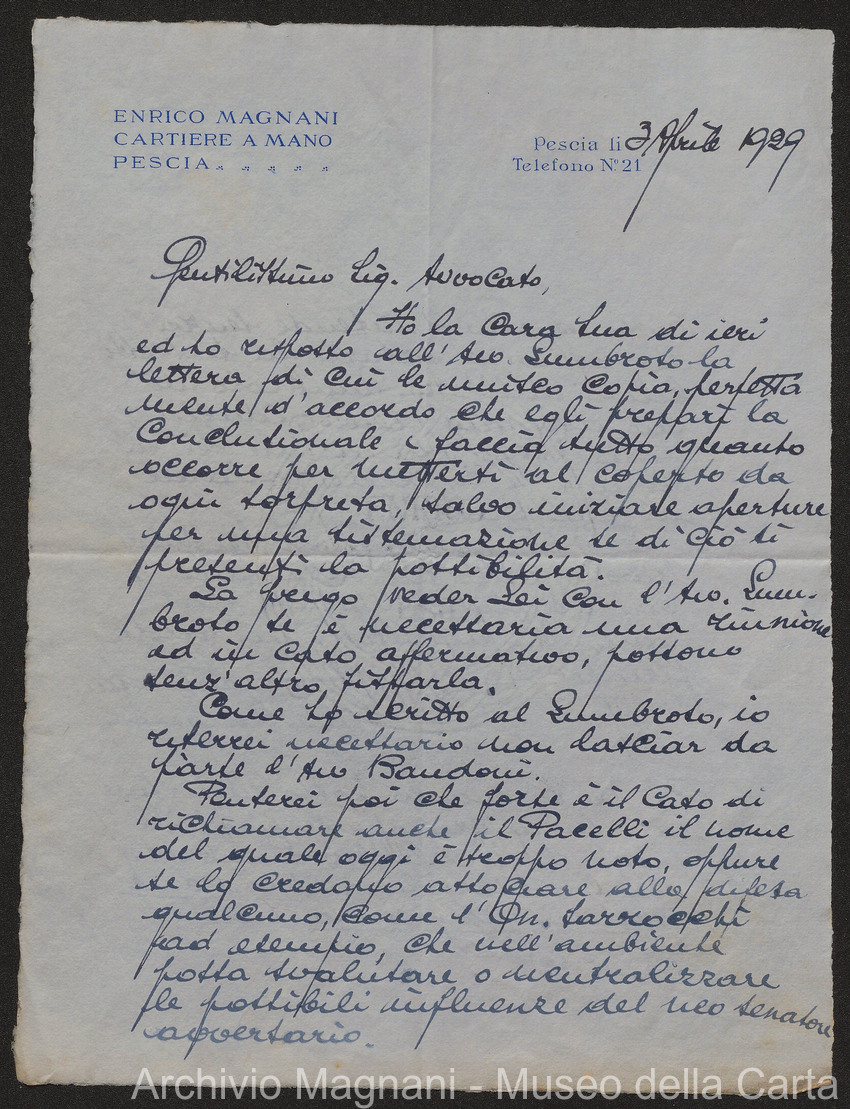 ENRICO MAGNANI
CARTIERE A MANO
PESCIA
Pescia li 3 Aprile 1929
Telefono Nº 21
Gentilissimo Sig. Avvocato,
Ho la Cara Sua di ieri
ed ho risposto all'Avv. Lumbroso la
lettera di cui le unisco copia, perfetta
mente d'accordo che egli prepari la
Conclusionale e faccia tutto quanto
occorre per metterti al coperto da
ogni sorpresa, salvo iniziare aperture
per una sistemazione se di ciò si
presenti la possibilità.
La prego veder Lei con l'Avv. Lum-
broso se è necessaria una riunione
ed in caso affermativo, possono
senz'altro fissarla.
Come ho scritto al Lumbroso, io
riterrei necessario non lasciar da
parte l'Avv Bandoni.
Penserei poi che forse è il caso di
richiamare anche il Pacelli il nome
del quale oggi è troppo noto, oppure
se lo credono associare alla difesa
qualcuno, come l'On. Sarrocchi
ad esempio, che nell'ambiente
possa svalutare o neutralizzare
le possibili influenze del neo senatore
avversario.
Archivio Magnani - Museo della Carta